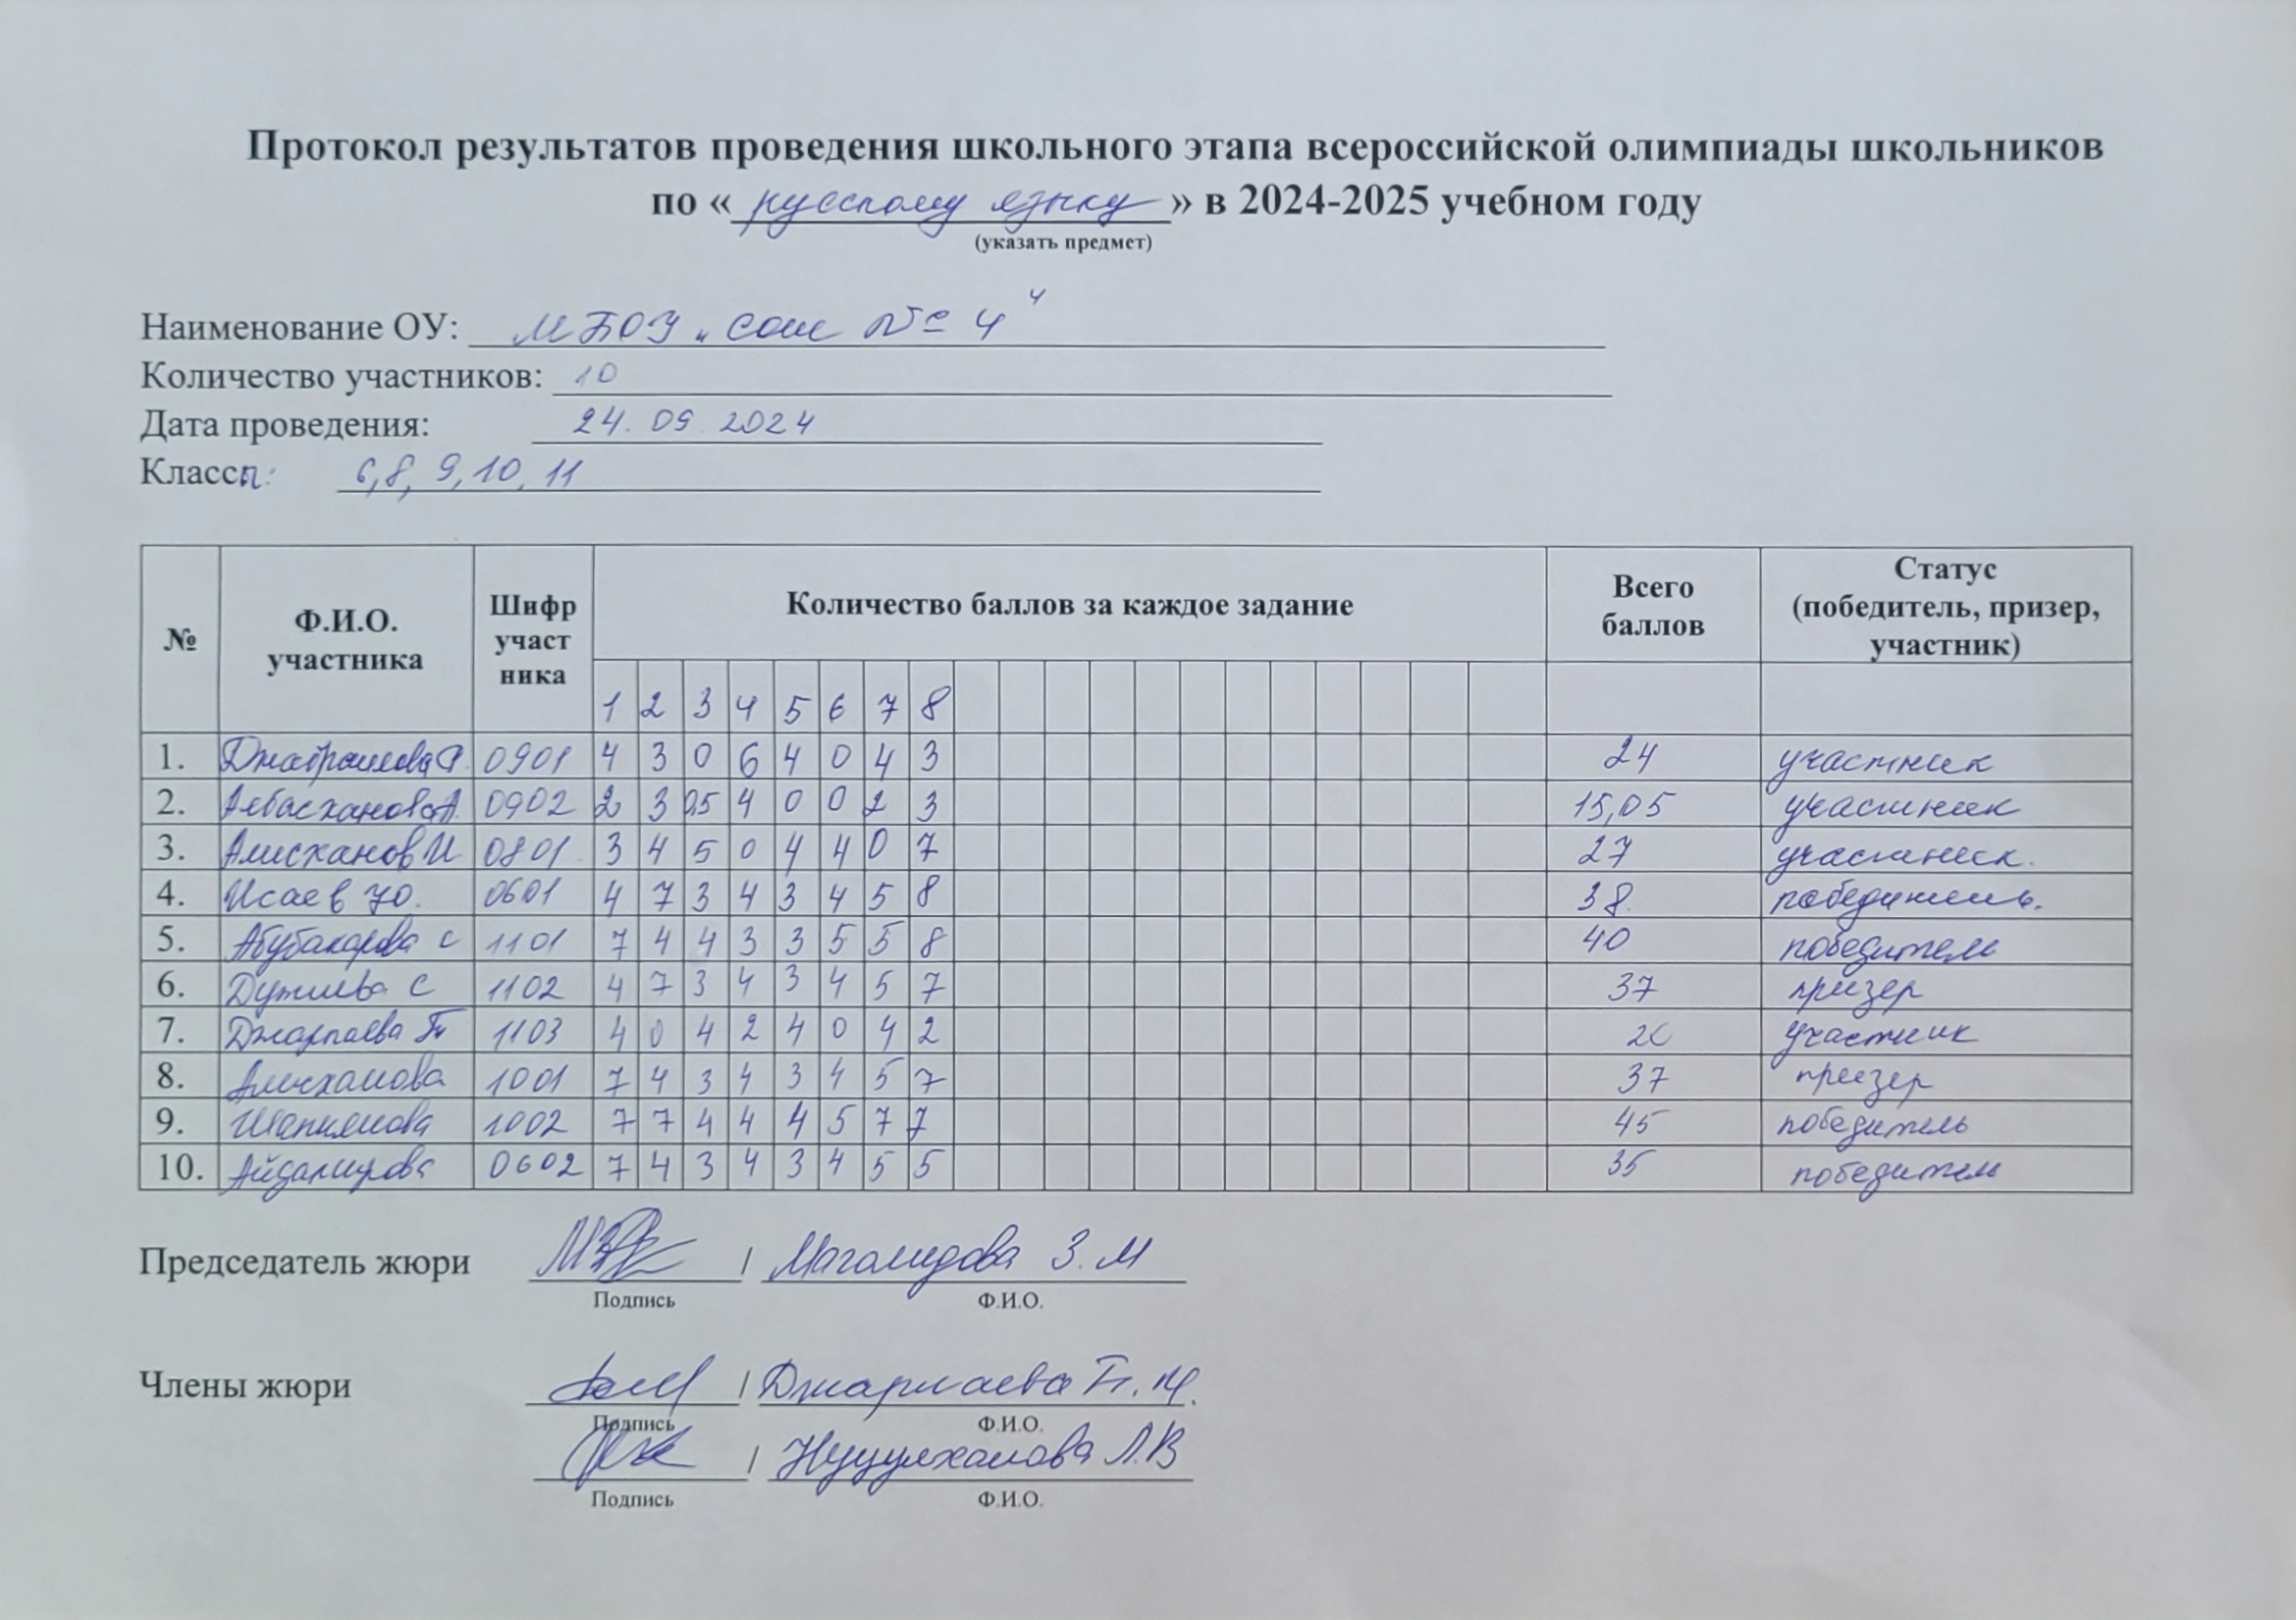 Протокол результатов проведения школьного этапа всероссийской олимпиады школьников
по «русскому языку» в 2024-2025 учебном году
(указать предмет)
Наименование ОУ: МБОУ „СОШ № 4"
Количество участников: 10
Дата проведения: 24.09.2024
Классы: 6,8, 9,10, 11
№ Ф.И.О. участника Шифр участ ника Количество баллов за каждое задание Всего баллов Статус (победитель, призер, участник)
1 2 3 4 5 6 7 8
1. Джабраилова Р. 0901 4 3 0 6 4 0 4 3 24 участник
2. Албасханова А. 0902 2 3 0,5 4 0 0 2 3 15,05 участник
3. Алисханов И 0801 3 4 5 0 4 4 0 7 27 участник.
4. Исаев Ю. 0601 4 7 3 4 3 4 5 8 38. победитель.
5. Абубакарова С 1101 7 4 4 3 3 5 5 8 40 победитель
6. С 1102 4 7 3 4 3 4 5 7 37 призер
7. Джарпаева 1103 4 0 4 2 4 0 4 2 20 участник
8. Алисханова 1001 7 4 3 4 3 4 5 7 37 призер
9. Шапиянова 1002 7 7 4 4 4 5 7 7 45 победитель
10. Айдамирова 0602 7 4 3 4 3 4 5 5 35 победитель
Председатель жюри / Магомадова З.М
Подпись Ф.И.О.
Члены жюри / Джарпаева
Подпись Ф.И.О.
/ Нуцулханова Л.В
Подпись Ф.И.О.